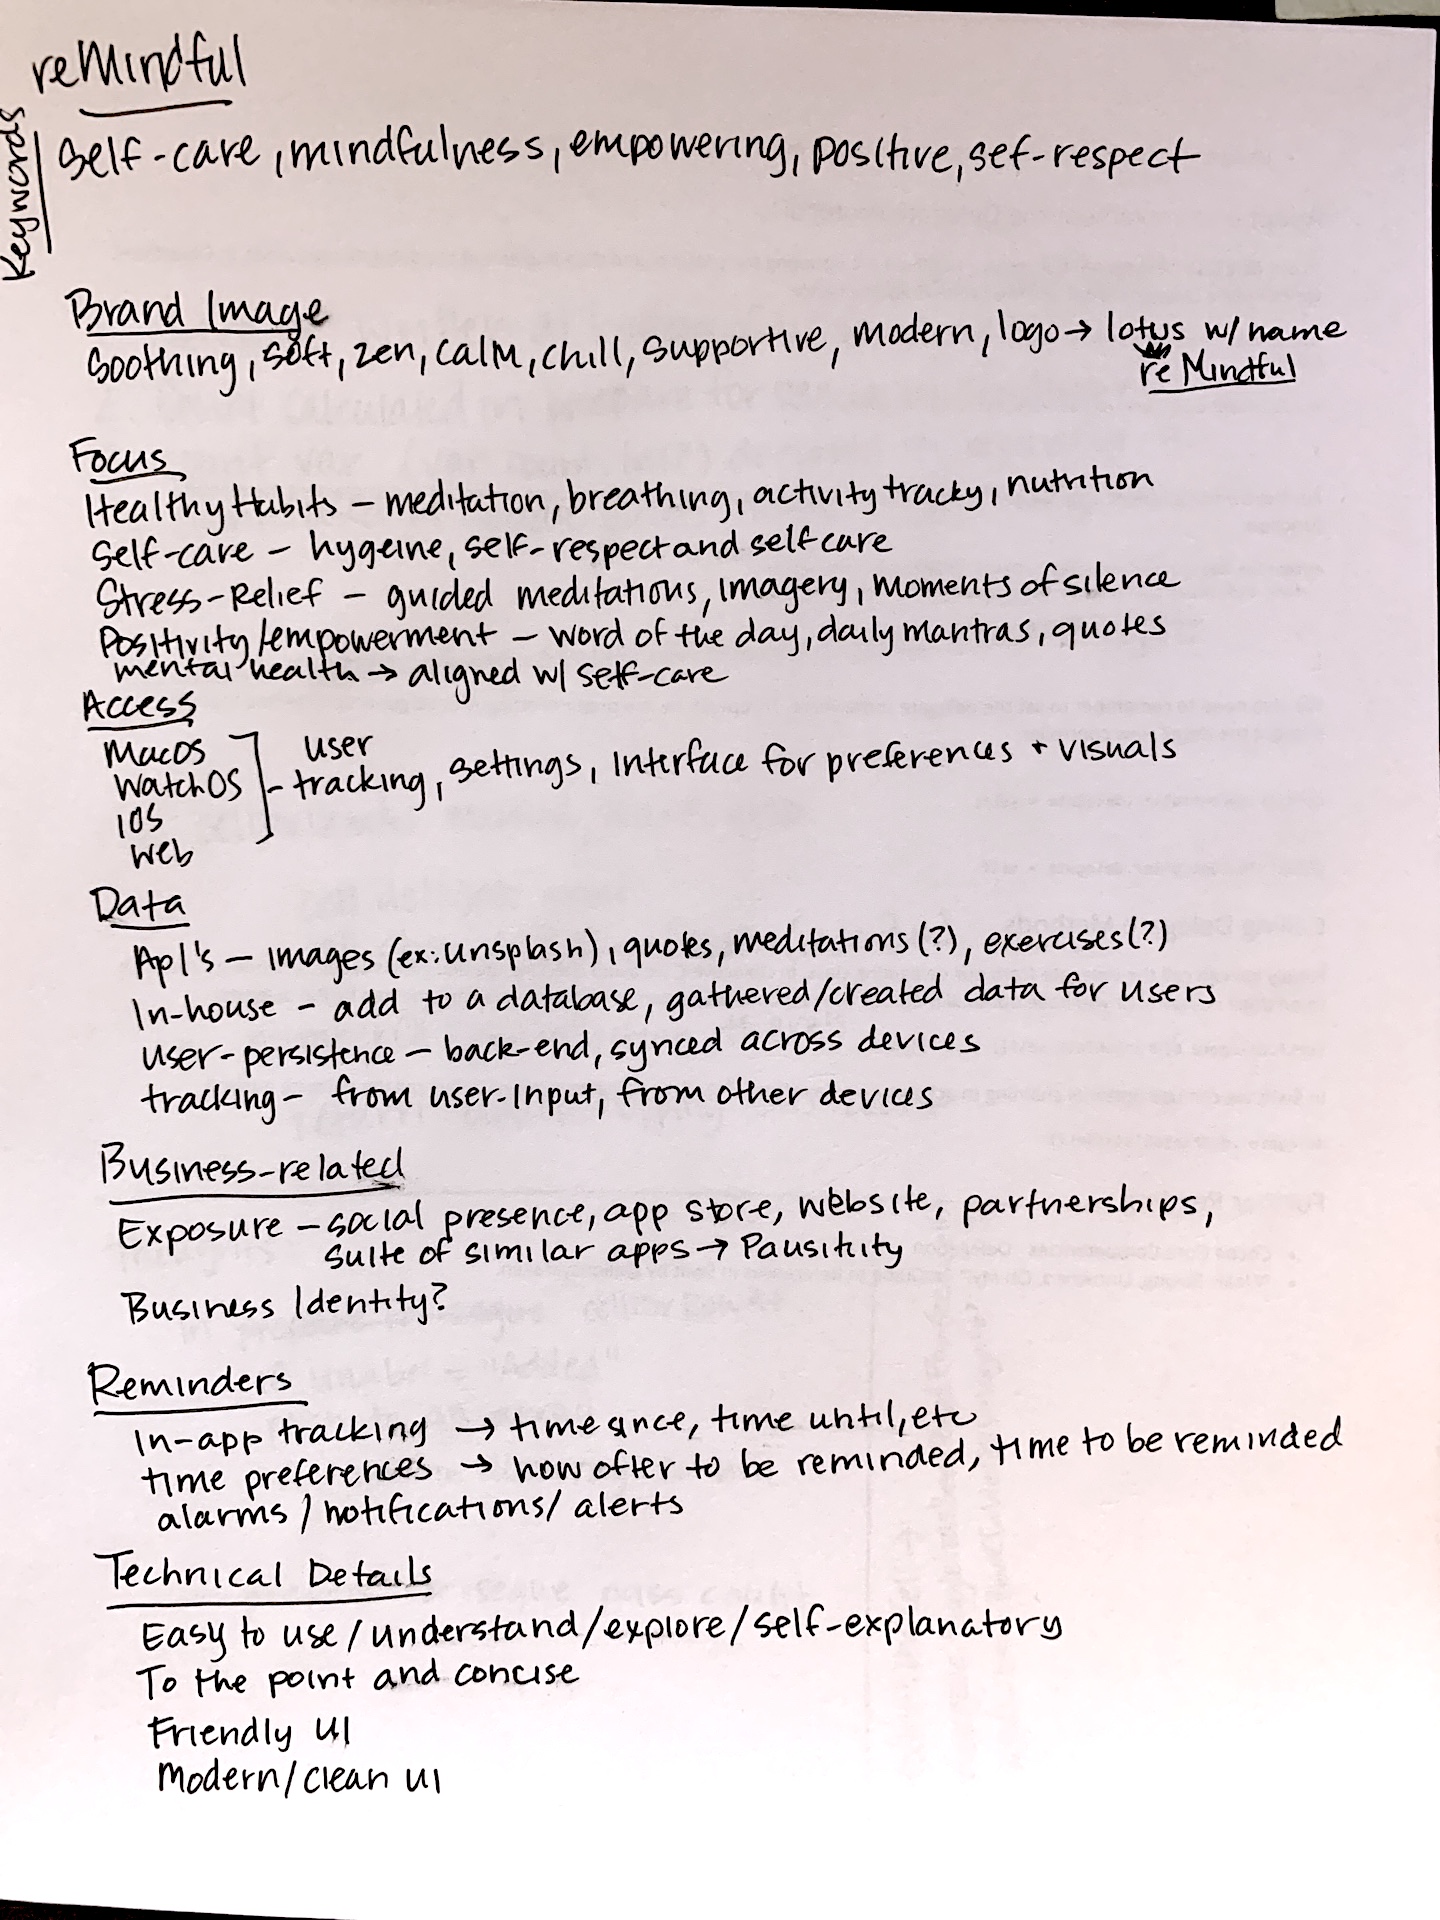 reMindful
Keywords
Self-care, mindfulness, empowering, positive, sef-respect
Brand Image
Soothing, soft, zen, calm, chill, supportive, modern, logo → lotus w/ name
re Mindful
Focus
Healthy Habits – meditation, breathing, activity tracky, nutrition
Self-care – hygeine, self-respect and self care
Stress-Relief – guided meditations, imagery, moments of silence
Positivity/empowerment – word of the day, daily mantras, quotes
mental health → aligned w/ self-care
Access
MacOS
WatchOS
iOS
Web
user
tracking, settings, interface for preferences + visuals
Data
API's – images (ex: unsplash), quotes, meditations (?), exercises (?)
In-house – add to a database, gathered/created data for users
user-persistence – back-end, synced across devices
tracking – from user-input, from other devices
Business-related
Exposure – social presence, app store, website, partnerships,
suite of similar apps → Pausitivity
Business Identity?
Reminders
In-app tracking → time since, time until, etc
time preferences → how often to be reminded, time to be reminded
alarms / notifications / alerts
Technical Details
Easy to use / understand / explore / self-explanatory
To the point and concise
Friendly UI
Modern/clean UI